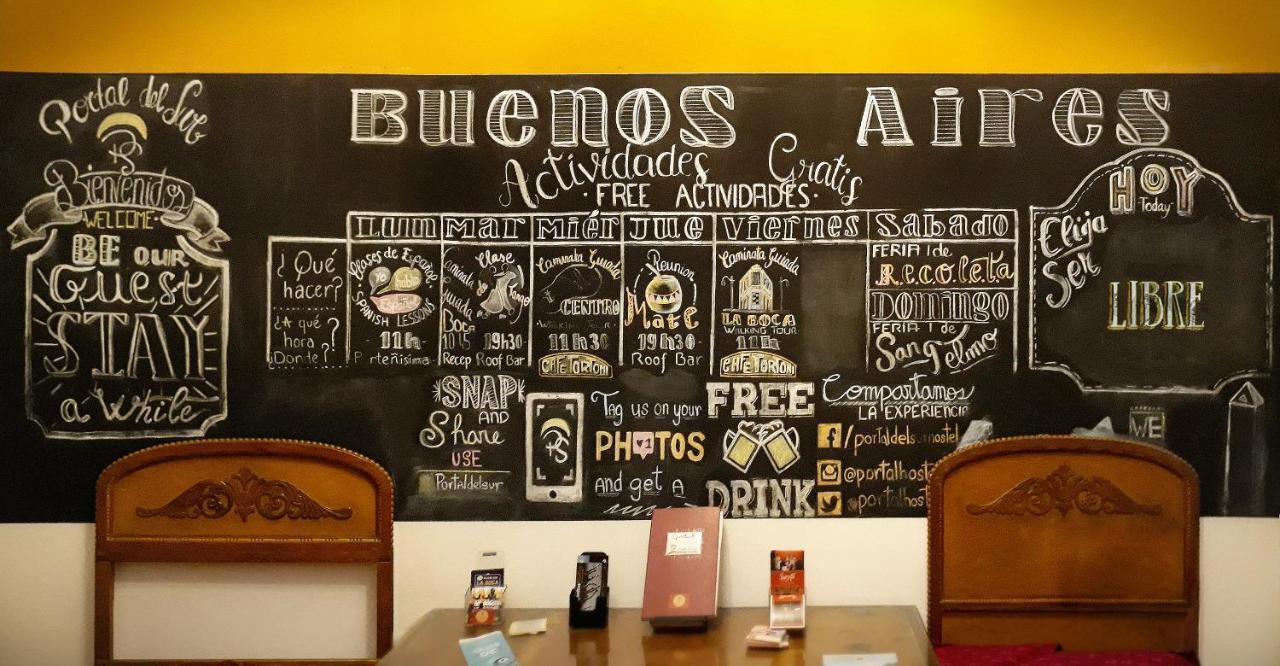 Portal del Sur
PS
Bienvenidos
WELCOME
BE OUR
Guest
STAY
a While
BUENOS AIRES
Actividades Gratis
· FREE ACTIVIDADES ·
¿Qué
hacer?
¿A qué
hora
¿Donde?
LUN
Clases de
Yo
hablo
Español
SPANISH LESSONS
11hs
MAR
Caminata
Guiada
Boca
10:15
Recep
Clase
Tango
19h30
Roof Bar
MIÉR
Caminata Guiada
CENTRO
WALKING TOUR
11h30
CAFE TORTONI
JUE
Reunion
Mate
19h30
Roof Bar
VIERNES
Caminata Guiada
LA BOCA
WILKING TOUR
11hs
CAFE TORTONI
SABADO
FERIA 1 de
Recoleta
DOMINGO
FERIA 1 de
San Telmo
HOY
Today
Elija
Ser
LIBRE
SNAP
AND
Share
USE
Portaldelsur
PS
Tag us on your
PHOTOS
1
and get a
FREE
DRINK
Compartamos
LA EXPERIENCIA
f
WE
LA BOCA